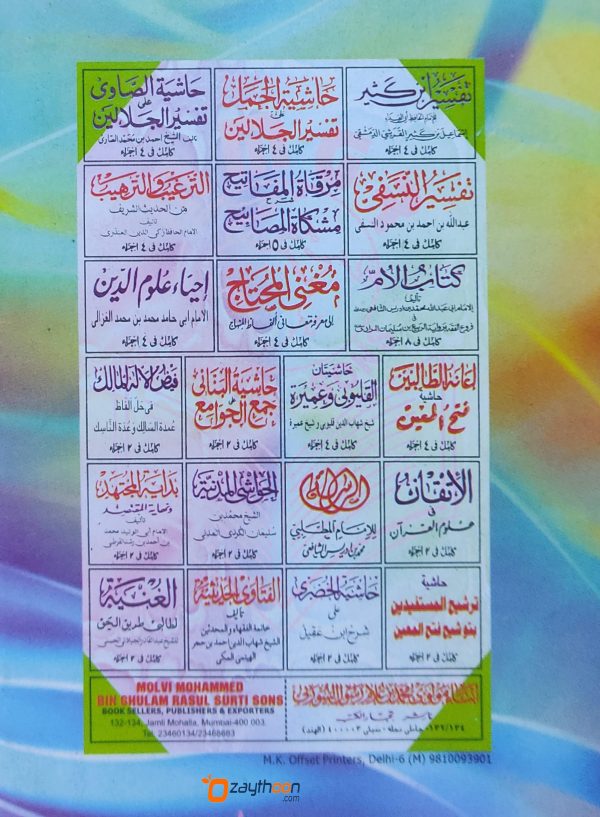 تفسير ابن كثير
للإمام الحافظ أبي الفداء
اسماعيل بن كثير القرشي الدمشقي
كامل فى ٤ اجزاء
حاشية الجمل
على
تفسير الجلالين
كامل فى ٤ اجزاء
حاشية الصاوى
على
تفسير الجلالين
تاليف الشيخ احمد بن محمد الصاوى
كامل فى ٤ اجزاء
تفسير النسفى
عبدالله بن احمد بن محمود النسفى
كامل فى ٤ اجزاء
مرقاة المفاتيح
شرح
مشكاة المصابيح
كامل فى ٥ اجزاء
الترغيب والترهيب
من الحديث الشريف
تاليف
الامام الحافظ زكى الدين المنذرى
كامل فى ٤ اجزاء
كتاب الأم
تأليف
كامل فى ٨ اجزاء
مغنى المحتاج
إلى معرفة معانى ألفاظ المنهاج
كامل فى ٤ اجزاء
إحياء علوم الدين
الامام ابى حامد محمد بن محمد الغزالى
كامل فى ٤ اجزاء
إعانة الطالبين
حاشية
فتح المعين
كامل فى ٤ اجزاء
حاشيتان
القليوبى وعميرة
شيخ شهاب الدين قليوبى و شيخ عميرة
كامل فى ٤ اجزاء
حاشية البنانى
على
جمع الجوامع
كامل فى ٢ اجزاء
فيض الإله المالك
فى حل الفاظ
عمدة السالك وعدة الناسك
كامل فى ٢ اجزاء
الإتقان
فى
علوم القرآن
كامل فى ٢ اجزاء
الرسالة
للإمام المطلبى
محمد بن ادريس الشافعى
الحواشى المدنية
الشيخ محمد بن
سليمان الكردى المدنى
كامل فى ٢ اجزاء
بداية المجتهد
ونهاية المقتصد
تأليف
الامام ابى الوليد محمد
بن احمد بن رشد القرطبى
كامل فى ٢ اجزاء
حاشية
ترشيح المستفيدين
بتوشيح فتح المعين
كامل فى ٢ اجزاء
حاشية الخضرى
على
شرح ابن عقيل
كامل فى ٢ اجزاء
الفتاوى الحديثية
تأليف
خاتمة الفقهاء والمحدثين
الشيخ شهاب الدين احمد بن حجر
الهيتمى المكى
الغنية
لطالبى طريق الحق
للشيخ عبدالقادر الجيلانى الحسنى
كامل فى ٢ اجزاء
MOLVI MOHAMMED
BIN GHULAM RASUL SURTI SONS
BOOK SELLERS, PUBLISHERS & EXPORTERS
132-134, Jamli Mohalla, Mumbai-400 003.
Tel. 23460134/23468683
١٣٢/١٣٤، جاملى محله - ممبئى ٤٠٠٠٠٣ (الهند)
M.K. Offset Printers, Delhi-6 (M) 9810093901
zaythoon
.com